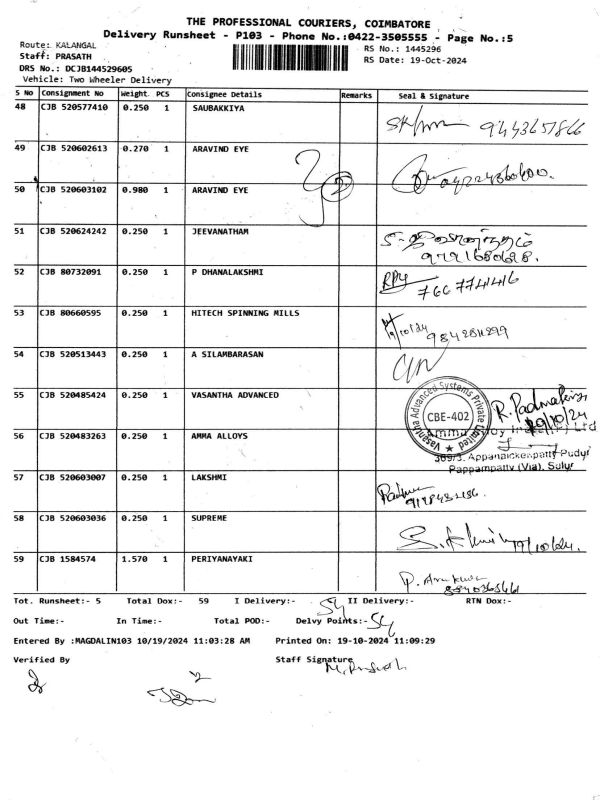 THE PROFESSIONAL COURIERS, COIMBATORE
Delivery Runsheet - P103 - Phone No.:0422-3505555 - Page No.:5
Route: KALANGAL
RS No.: 1445296
Staff: PRASATH
RS Date: 19-Oct-2024
DRS No.: DCJB144529605
Vehicle: Two Wheeler Delivery
S No Consignment No Weight PCS Consignee Details Remarks Seal & Signature
48 CJB 520577410 0.250 1 SAUBAKKIYA
9443657866
49 CJB 520602613 0.270 1 ARAVIND EYE
2
50 CJB 520603102 0.980 1 ARAVIND EYE
04224360400.
51 CJB 520624242 0.250 1 JEEVANATHAM
52 CJB 80732091 0.250 1 P DHANALAKSHMI
7667741416
53 CJB 80660595 0.250 1 HITECH SPINNING MILLS
9842811299
54 CJB 520513443 0.250 1 A SILAMBARASAN
55 CJB 520485424 0.250 1 VASANTHA ADVANCED
Vasantha Advanced Systems Private Limited
CBE-402
R. Padma
19/10/24
56 CJB 520483263 0.250 1 AMMA ALLOYS
Amma
Ltd
309/3, Appanaickenpatti Pudur
Pappampatty (Via), Sulur
57 CJB 520603007 0.250 1 LAKSHMI
58 CJB 520603036 0.250 1 SUPREME
19/10/24.
59 CJB 1584574 1.570 1 PERIYANAYAKI
Tot. Runsheet:- 5 Total Dox:- 59 I Delivery:- 54 II Delivery:- RTN Dox:-
Out Time:- In Time:- Total POD:- Delvy Points:- 54
Entered By :MAGDALIN103 10/19/2024 11:03:28 AM Printed On: 19-10-2024 11:09:29
Verified By Staff Signature